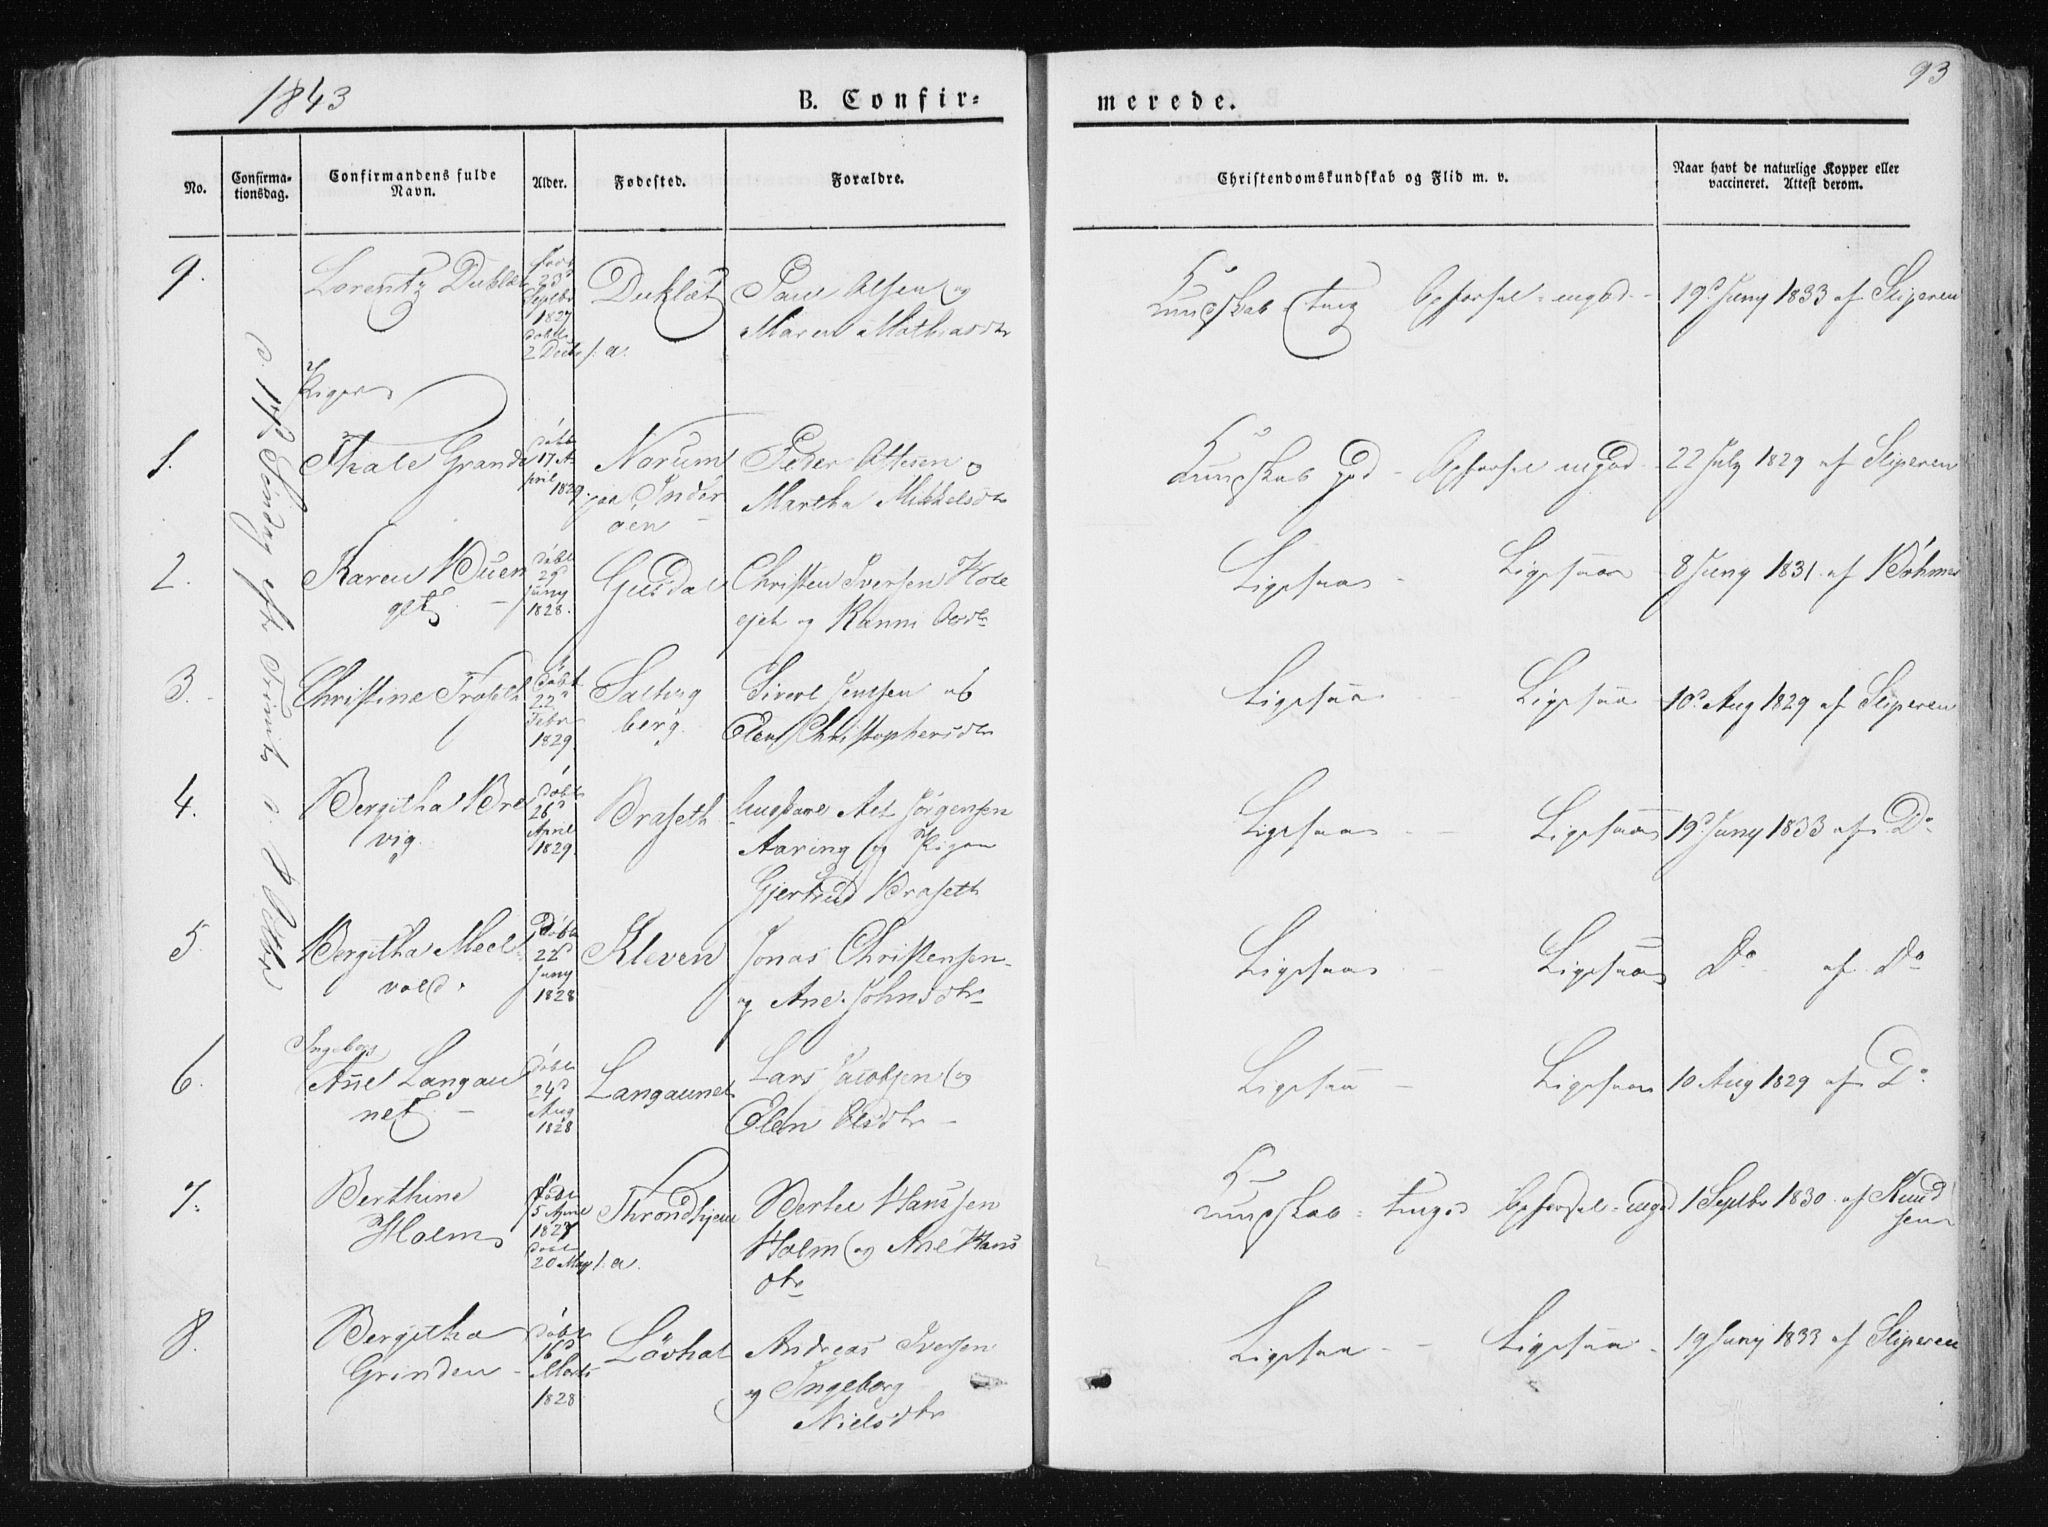 1843
B. Confir-
merede.
93
No.
Confirma-
tionsdag.
Confirmandens fulde
Navn.
Alder.
Fødested.
Forældre.
Christendomskundskab og Flid m. v.
Naar havt de naturlige Kopper eller
vaccineret. Attest derom.
9.
Lorentz Duklæt
født
23d
Septbr
1827
døbt
2 Decbr s. a.
Duklæt
Paul Olsen og
Maren Mathiasdtr
Kundskab
Opførsel megod
19d Juny 1833 af Sliperen
Piger
1.
Thale Grande
døbt
17 A
pril
1829.
Norum
paa Inder
øen
Peder Ottesen og
Martha Mikkelsdtr
Kundskab god - Opførsel megod
22 July 1829 af Sliperen
2.
Karen Buen
get
døbt
29
Juny
1828.
Gusdal
Christen Iversen Hole
ejet og Ranni
Ligesaa
Ligesaa
8 Juny 1831 af Böhmer
3.
Christine Troseth
døbt
22d
Febr
1829.
Salberg
berg
Sivert Jensen og
Elen Christophersdtr
Ligesaa
Ligesaa
10d Aug 1829 af Sliperen
4.
Bergitha Bre
vig
døbt
26d
April
1829.
Braseth
Ungkarl Jørgensen
Aaring og Pigen
Gjertrud Braseth
Ligesaa
Ligesaa
19d Juny 1833 af Do
5.
Bergitha Mecl
vold
Døbt
22d
Juny
1828
Kleven
Jonas Christensen
og Ane Johnsdtr
Ligesaa
Ligesaa
Do af Do
6.
Ingeborg
Ane Langau
net
døbt
24d
Aug
1828
Langaunet
Lars Jacobsen og
Elen Olsdtr
Ligesaa
Ligesaa
10 Aug 1829 af Do
7.
Berthine
Holm
født
5 April
1827
døbt
20 May s. a.
Throndhjem
Berten Hanssen
Holm og Ane Hans
dtr
Kundskab
Opførsel megod
1 Septbr 1830 af Knud
sen
8.
Bergitha
Grinden
døbt
16d
Marts
1828
Løvhat
Andreas Iversen
og Ingeborg
Nielsdtr
Ligesaa
Ligesaa
19 Juny 1833 af Sliperen
d. 17de Søndag efter Trinit. d. 8 Octbr